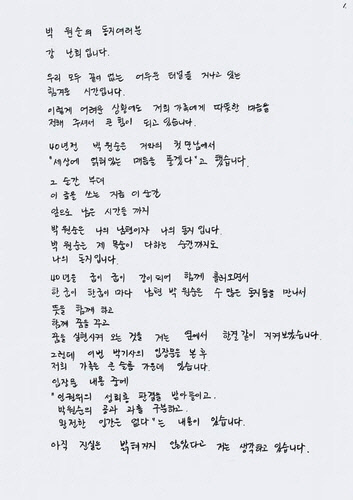 1.
박 원순의 동지여러분
강 난희입니다.
우리 모두 끝이 없는 어두운 터널을 지나고 있는
힘겨운 시간입니다.
이렇게 어려운 상황에도 저희 가족에게 따뜻한 마음을
전해 주셔서 큰 힘이 되고 있습니다.
40년전 박 원순은 저와의 첫 만남에서
"세상에 얽혀있는 매듭을 풀겠다"고 했습니다.
그 순간 부터
이 글을 쓰는 지금 이 순간
앞으로 남은 시간들 까지
박 원순은 나의 남편이자 나의 동지 입니다.
박 원순은 제 목숨이 다하는 순간까지도
나의 동지입니다.
40년을 굽이 굽이 강이되어 함께 흘러오면서
한 굽이 한굽이 마다 남편 박 원순은 수 많은 동지들을 만나서
뜻을 함께 하고
함께 꿈을 꾸고
꿈을 실현시켜 오는 것을 저는 옆에서 한결 같이 지켜보았습니다.
그런데 이번 박기사의 입장문을 본 후
저희 가족은 큰 슬픔 가운데 있습니다.
입장문 내용 중에
"인권위의 성희롱 판결을 받아들이고.
박원순의 공과 과를 구분하고.
완전한 인간은 없다"는 내용이 있습니다.
아직 진실은 밝혀지지 않았다고 저는 생각하고 있습니다.